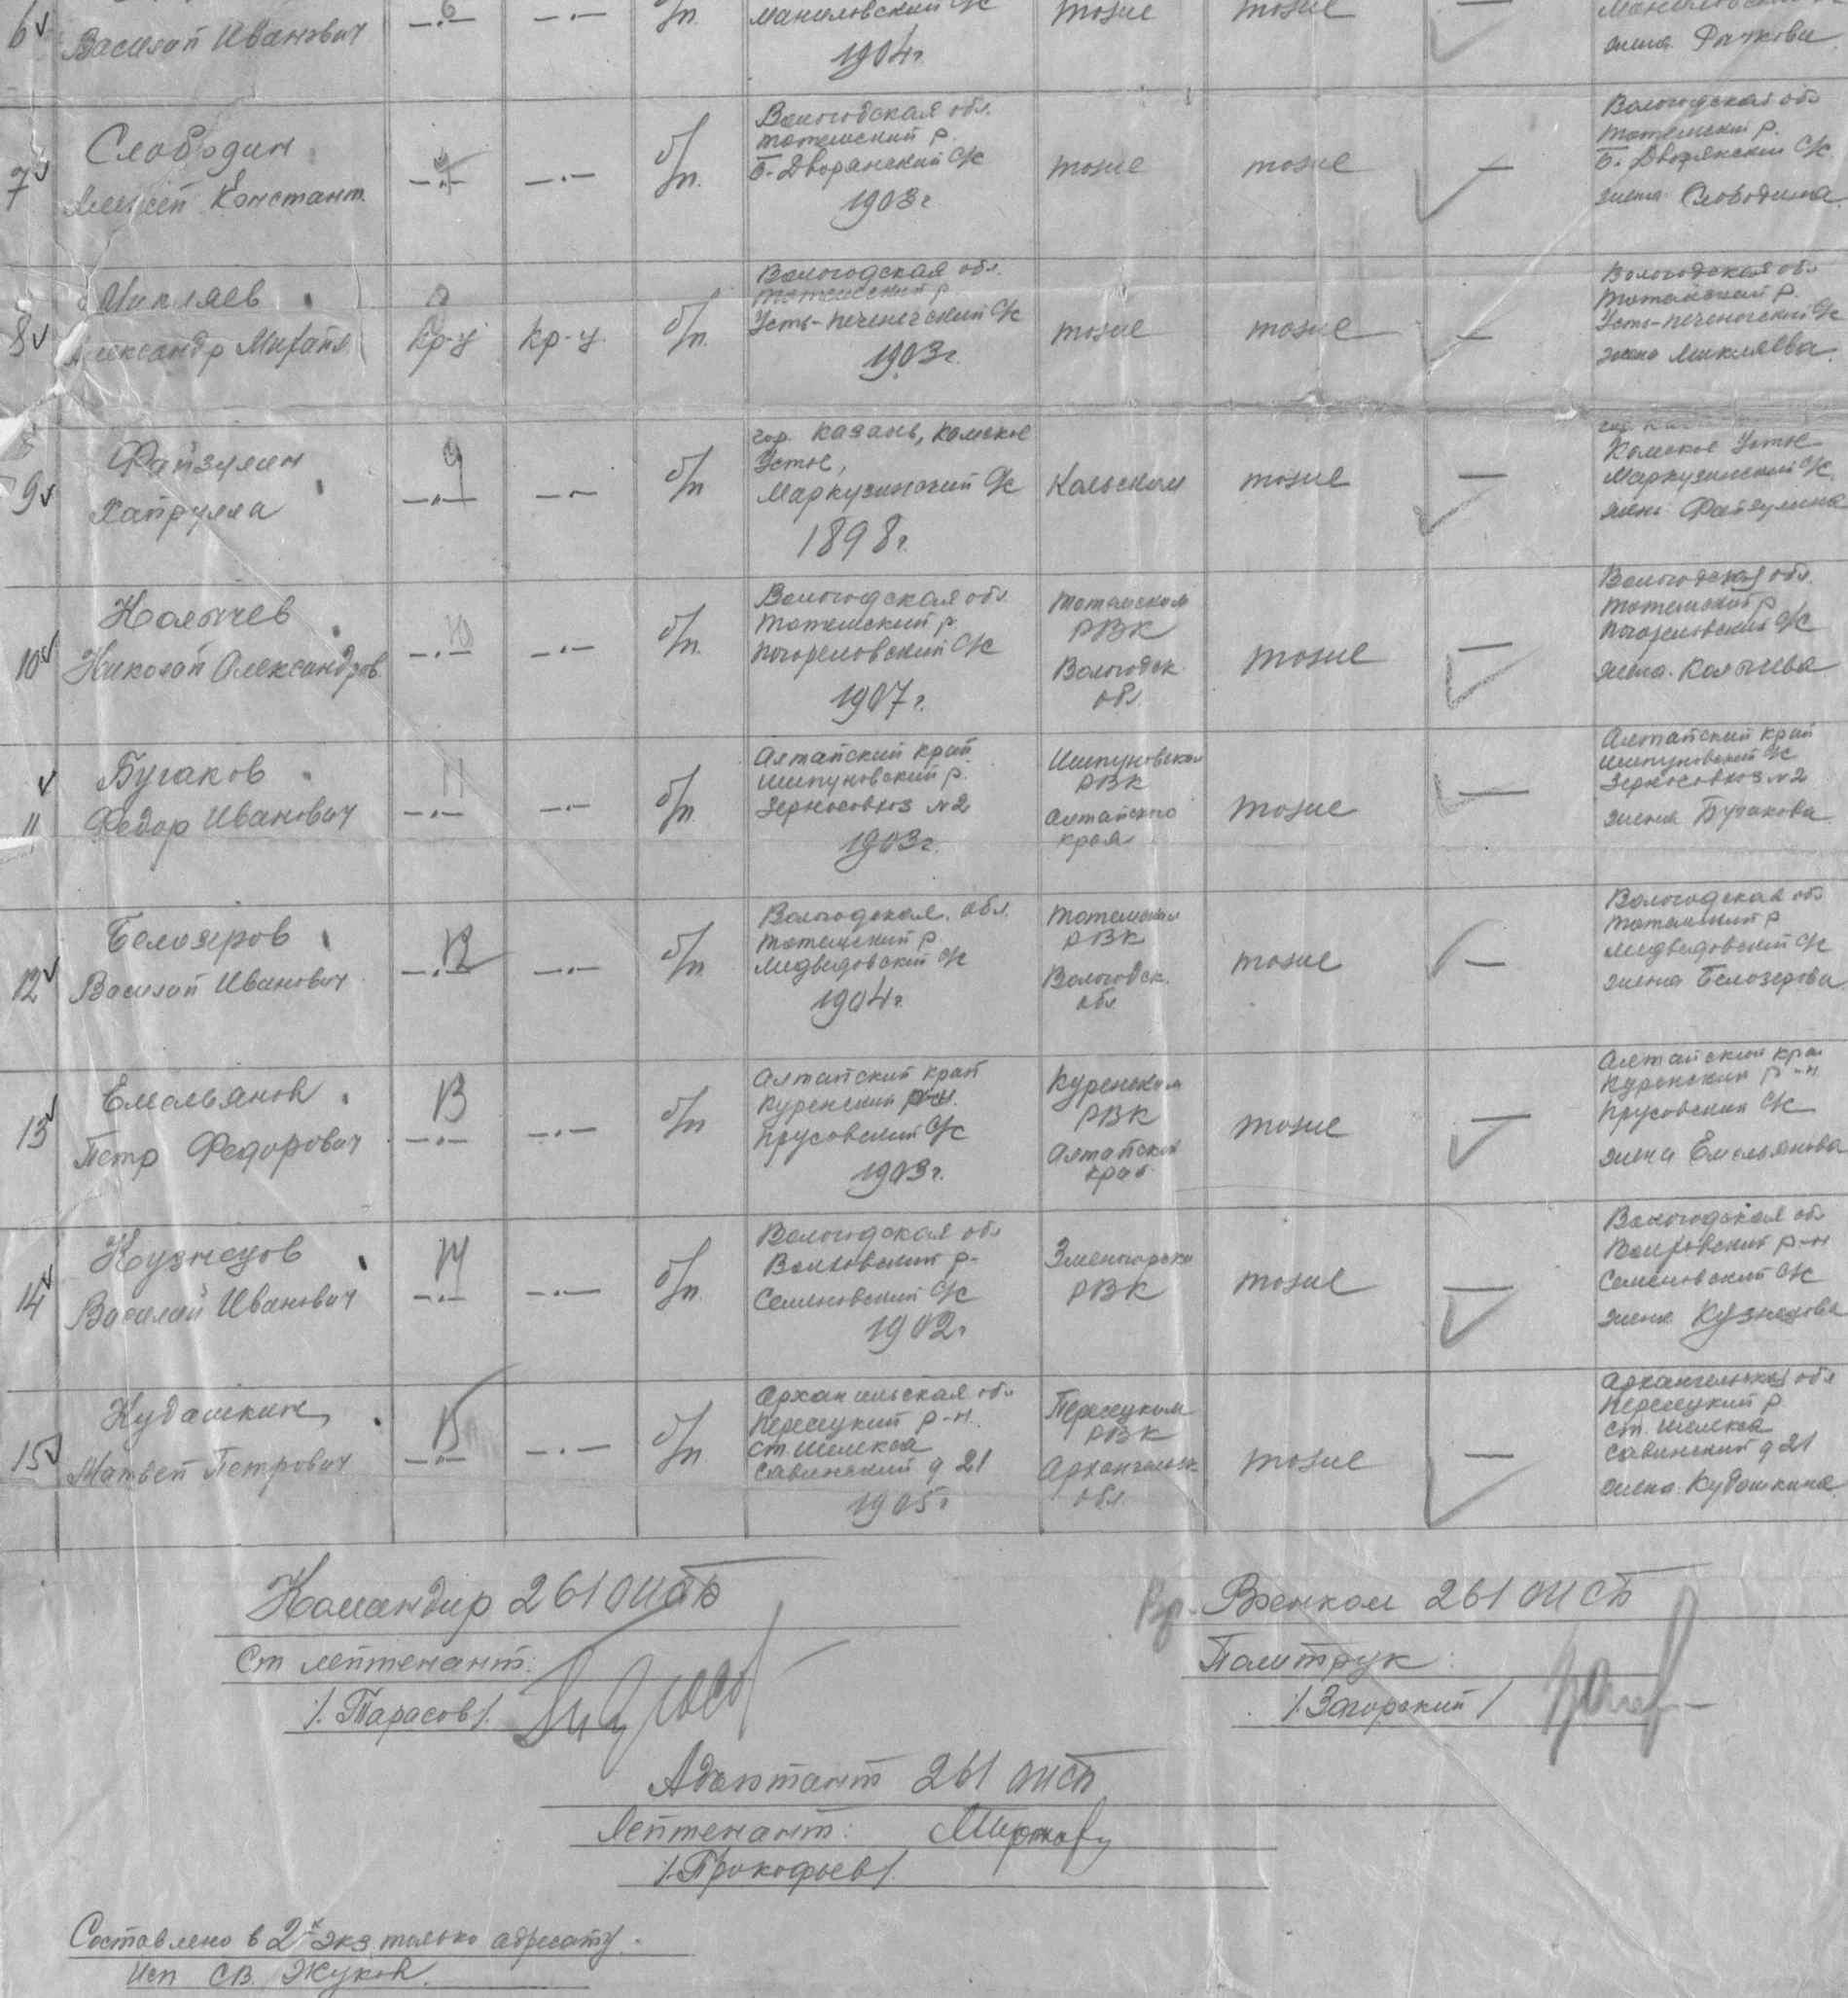 6 Василий Иванович —·— —·— б/п. Маниловский с/с 1904г. тоже тоже — жена Рычкова
7 Слободин
Алексей Констант. —·— —·— б/п.
Вологодская обл.
Тотемский р.
Б-Дворянский с/с
1903г
тоже тоже —
Вологодская обл
Тотемский р.
Б. Дворянский с/с
жена Слободина
8 Микляев
Александр Михайл
Кр-ц Кр-ц б/п.
Вологодская обл.
Тотемский р
Усть-Печенгский с/с
1903г.
тоже тоже —
Вологодская обл
Тотемский р.
Усть-Печенгский с/с
жена Микляева
9 Файзулин
Хайрулла
—·— —·— б/п
гор. Казань, Камское
Устье,
Маркузинский с/с
1898г.
Кольским тоже —
Камское Устье
Маркузинский с/с
жена Файзулина
10 Колычев
Николай Александров.
—·— —·— б/п.
Вологодская обл
Тотемский р.
Погореловский с/с
1907г.
Тотемском
РВК
Вологодск.
обл.
тоже —
Вологодская обл.
Тотемский р
Погореловский с/с
жена. Колычева
11 Бугаков
Федор Иванович
—·— —·— б/п
Алтайский край
Шипуновский р.
Зерносовхоз №2
1903г.
Шипуновском
РВК
Алтайского
края
тоже —
Алтайский край
Шипуновский с/с
Зерносовхоз №2
жена Бугакова
12 Белозеров
Василий Иванович
12 —·— —·— б/п
Вологодская. обл.
Тотемский р
Медведовский с/с
1904г
Тотемским
РВК
Вологодск.
обл
тоже —
Вологодская обл
Тотемский р
Медведовский с/с
жена Белозерова
13 Емельянов
Петр Федорович
13 —·— —·— б/п
Алтайский край
Куренский р-н.
Прусовский с/с
1903г.
Куренским
РВК
Алтайский
край
тоже —
Алтайский край
Куренский р-н
Прусовский с/с
жена Емельянова
14 Кузнецов
Василий Иванович
14 —·— —·— б/п.
Вологодская обл
Семеновский с/с
1902г
Змеиногорск
РВК
тоже —
Вологодская обл
Семеновский с/с
жена Кузнецова
15 Кудашкин
Матвей Петрович
15 —·— —·— б/п.
Архангельская обл
Пересецкий р-н.
ст. Шелекса
Савинский д 21
1905г
Пересецким
РВК
Архангельск
обл.
тоже —
Архангельская обл
Пересецкий р
ст. Шелекса
Савинский д 21
жена. Кудашкина
Командир 261 оисб
Ст лейтенант:
/. Тарасов /.
Вр. Военком 261 оисб
Политрук:
/. Загорский /
Адъютант 261 оисб
Лейтенант:
/. Прокофьев /.
Составлено в 2х экз только адресату.
Исп СВ. Жуков.